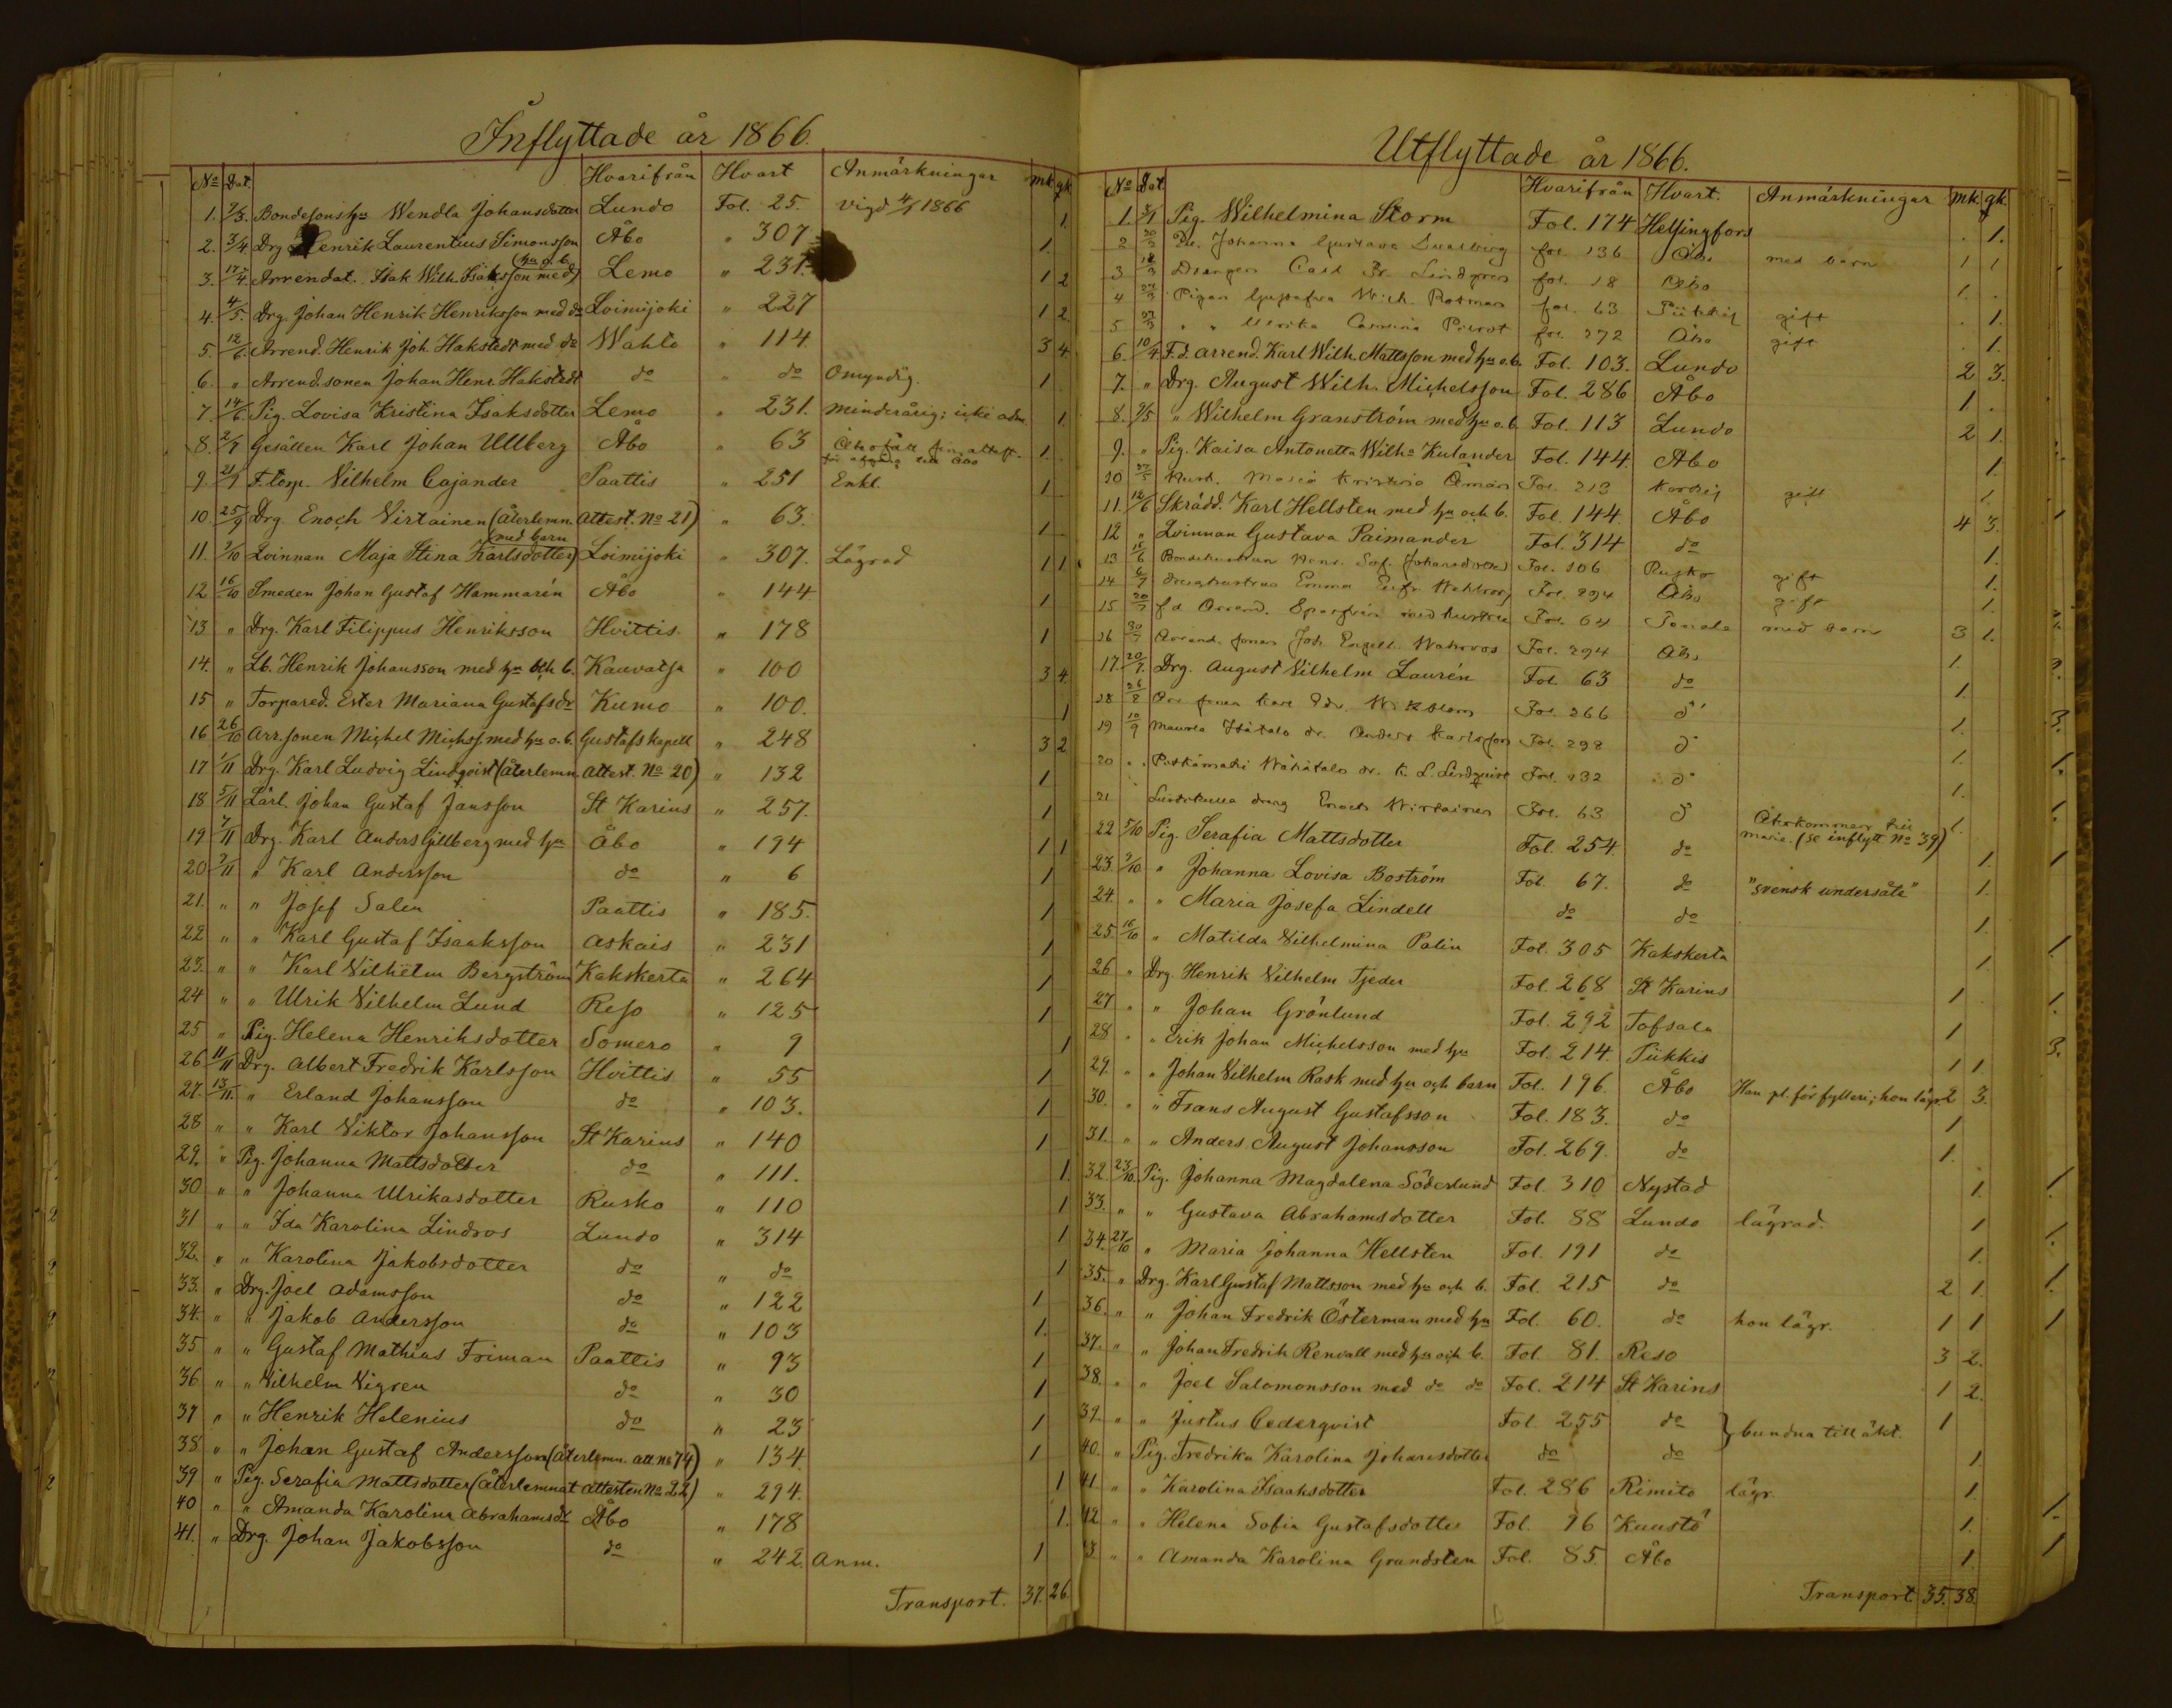 Inflyttade år 1866.
No Dat. Hvarifrån Hvart Anmärkningar mk. qk.
1. 9/3. Bondesonshu Wendla Johansdotter Lundo Fol. 25. vigd 4/1 1866 1.
2. 3/4. Drg Henrik Laurentius Simonsson Åbo " 307 1.
3. 17/4. Arrendat. Isak Wilh. Isaksson med hu o. b. Lemo " 231. 1 2
4. 4/5. Drg. Johan Henrik Henriksson med do Loimijoki " 227 1 2.
5. 12/6. Arrend. Henrik Joh. Hakstedt med do Wahto " 114 3 4
6. " Arrend.sonen Johan Henr. Hakstedt do " do Omyndig. 1
7. 14/6 Pig. Lovisa Kristina Isaksdotter Lemo " 231. minderårig; icke adm. 1.
8. 2/7 Gesällen Karl Johan Ullberg Åbo " 63 1.
9. 21/7 F. torp. Vilhelm Cajander Paattis " 251 Enkl. 1
10 25/9 Drg Enoch Virtainen (återlemn. Attest. No 21) " 63. 1
11. 7/10 Qvinnan Maja Stina Karlsdotter (med barn) Loimijoki " 307. Lägrad 1 1
12 16/10 Smeden Johan Gustaf Hammarén Åbo " 144 1
13 " Drg. Karl Filippus Henriksson Hvittis " 178 1
14. " Lb. Henrik Johansson med hu och b. Kauvatsa " 100 3 4
15 " Torpared. Ester Mariana Gustafsdr Kumo " 100. 1
16 26/10 Arr.sonen Michel Michss med hu o. b. Gustafs kapell " 248 3 2
17 1/11 Drg. Karl Ludvig Lindqvist (återlemn. attest. No 20) " 132 1
18 5/11 Lärl. Johan Gustaf Jansson St Karins " 257. 1
19 7/11 Drg. Karl Anders Gillberg med hu Åbo " 194 1 1
20 9/11 " Karl Andersson do " 6 1
21. " " Josef Salen Paattis " 185. 1
22 " " Karl Gustaf Isaaksson Askais " 231 1
23. " " Karl Vilhelm Bergström Kakskerta " 264 1
24 " " Ulrik Vilhelm Lund Reso " 125 1
25 " Pig. Helena Henriksdotter Somero " 9 1
26 11/11 Drg. Albert Fredrik Karlsson Hvittis " 55 1
27. 13/11. " Erland Johansson do " 103. 1
28 " " Karl Viktor Johansson St Karins " 140 1
29. " Pig. Johanna Mattsdotter do " 111. 1.
30 " " Johanna Ulrikasdotter Rusko " 110 1
31 " " Ida Karolina Lindros Lundo " 314 1
32. " " Karolina Jakobsdotter do " do 1
33. " Drg. Joel Adamsson do " 122 1
34. " " Jakob Andersson do " 103 1.
35 " " Gustaf Mathias Friman Paattis " 93 1
36 " " Vilhelm Vigren do " 30 1
37 " " Henrik Helenius do " 23 1
38 " " Johan Gustaf Andersson (återlemn. att. No 74) " 134. 1
39 " Pig. Serafia Mattsdotter (återlemnat attesten No 22) " 294. 1
40 " " Amanda Karolina Abrahamsdr Åbo " 178 1.
41. " Drg. Johan Jakobsson do " 242. Anm. 1
Transport. 37. 26.
Utflyttade år 1866.
No Dat. Hvarifrån Hvart. Anmärkningar mk. qk.
1. Pig. Wilhelmina Storm Fol. 174 Helsingfors 1.
2 Johanna Gustava fol. 136 Åbo med barn 1 1
3 Drängen Carl Fr. Lindgren fol. 18 Åbo 1.
4 27/3 Pigan Gustafva Rosman fol. 63 Piikkis gift 1.
5 27/3 " " Ulrika fol. 272 Åbo gift 1.
6. 10/4 F.d. arrend. Karl Wilh. Mattsson med hu o. b. Fol. 103. Lundo 2 3.
7. " Drg. August Wilh. Michelsson Fol. 286 Åbo 1.
8. 9/5 " Wilhelm Granström med hu o. b. Fol. 113 Lundo 2 1.
9. " Pig. Kaisa Antonetta Wilha Kulander Fol. 144. Åbo 1.
10 27/5 Maria Kristina Öman Fol. 213 Korois gift 1
11. 12/6 Skrädd. Karl Hellsten med hu och b. Fol. 144. Åbo 4 3.
12 " Qvinnan Gustava Paimander Fol. 314 do 1.
13 15/6 Johansdotter Fol. 106 Rusko gift 1.
14 Emma Fol. 294 Åbo gift 1.
15 20/7 f.d. Arrend. med hustru Fol. 64 med barn 3 1.
16 30/7 Arrend. sonen Joh. Engelb. Wahlroos Fol. 294 Åbo 1.
17. 20/8 Drg. August Vilhelm Laurén Fol. 63 do 1
18 26/8 Fol. 266 do 1.
19 10/9 Maunla Isätalo dr. Anders Karlsson Fol. 298 do 1.
20 " Pitkämäki Wähätalo dr. K. L. Lindqvist Fol. 132 do 1.
21 dräng Enoch Wirtainen Fol. 63 do Återkommen till Marie. (se inflytt. No 39) 1.
22 5/10 Pig. Serafia Mattsdotter Fol. 254. do 1.
23. 9/10. " Johanna Lovisa Boström Fol. 67. do "svensk undersåte" 1.
24. " " Maria Josefa Lindell do do 1.
25. 16/10 " Matilda Vilhelmina Palin Fol. 305 Kakskerta 1.
26 " Drg. Henrik Vilhelm Tjeder Fol. 268 St Karins 1
27 " " Johan Grönlund Fol. 292 Tofsala 1
28 " " Erik Johan Michelsson med hu Fol. 214. Piikkis 1 1
29. " " Johan Vilhelm Rask med hu och barn Fol. 196. Åbo Han pl. för fylleri; hon lägr. 2 3.
30. " " Frans August Gustafsson Fol. 183. do 1
31. " " Anders August Johansson Fol. 269. do 1.
32. 23/10. Pig. Johanna Magdalena Söderlund Fol. 310 Nystad 1.
33. " " Gustava Abrahamsdotter Fol. 88 Lundo lägrad. 1
34. 27/10 " Maria Johanna Hellsten Fol. 191 do 1.
35. " Drg. Karl Gustaf Mattsson med hu och b. Fol. 215 do 2 1.
36. " " Johan Fredrik Österman med hu Fol. 60. do hon lägr. 1 1
37. " " Johan Fredrik Renvall med hu och b. Fol. 81. Reso 3 2.
38. " " Joel Salomonsson med do do Fol. 214 St Karins 1 2.
39. " " Justus Cederqvist Fol. 255 do } bundna till äkt. 1
40. " Pig. Fredrika Karolina Johansdotter do do 1
41. " " Karolina Isaaksdotter Fol. 286 Rimito lägr. 1.
42. " " Helena Sofia Gustafsdotter Fol. 76 Kuustö 1.
43. " " Amanda Karolina Grandsten Fol. 85. Åbo 1.
Transport 35. 38.